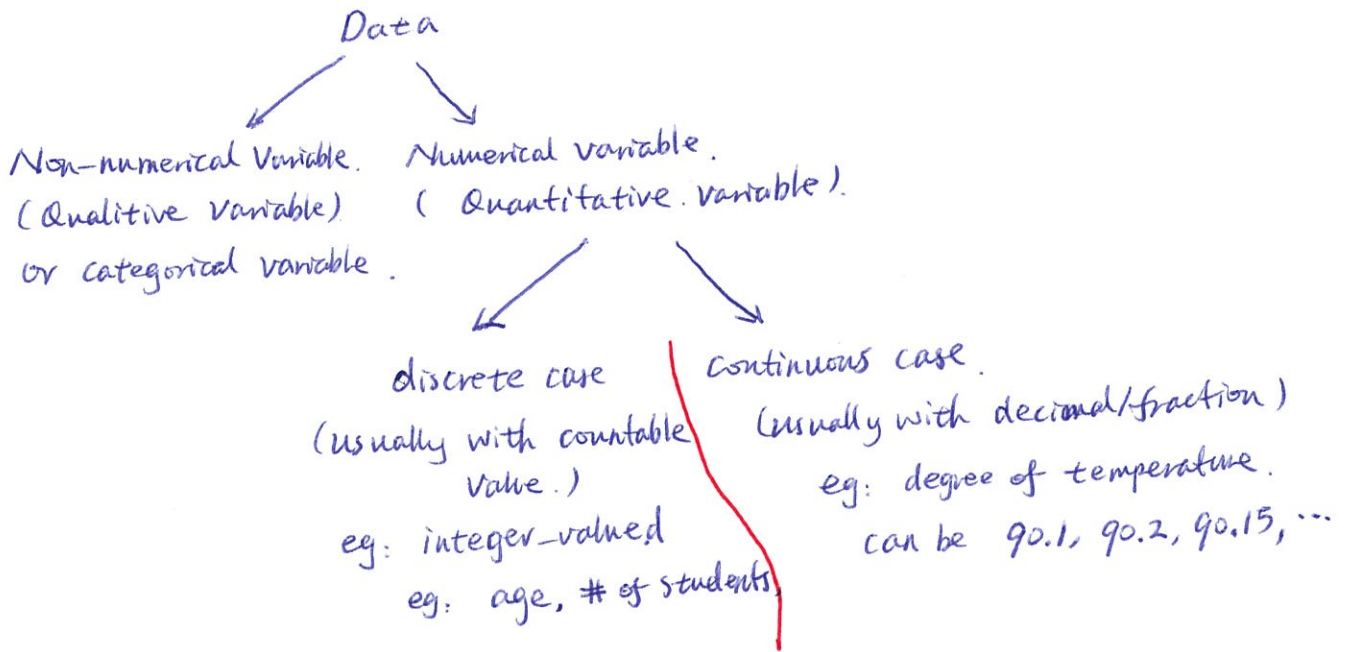 Data
Non-numerical Variable.
(Qualitive Variable)
or categorical variable.
Numerical variable.
(Quantitative. variable).
discrete case
(usually with countable
value.)
eg: integer-valued
eg: age, # of students,
continuous case.
(usually with decimal/fraction)
eg: degree of temperature.
can be 90.1, 90.2, 90.15, ...